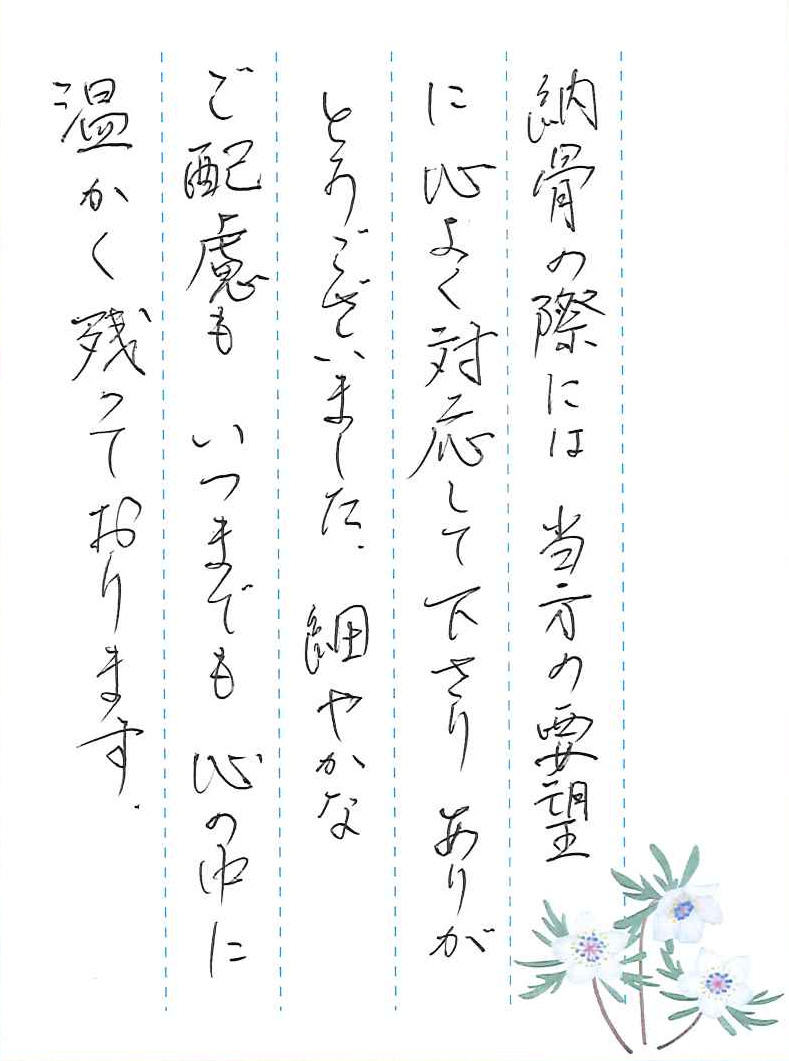 納骨の際には 当方の要望
に心よく対応して下さり ありが
とうございました. 細やかな
ご配慮も いつまでも 心の中に
温かく残っております.